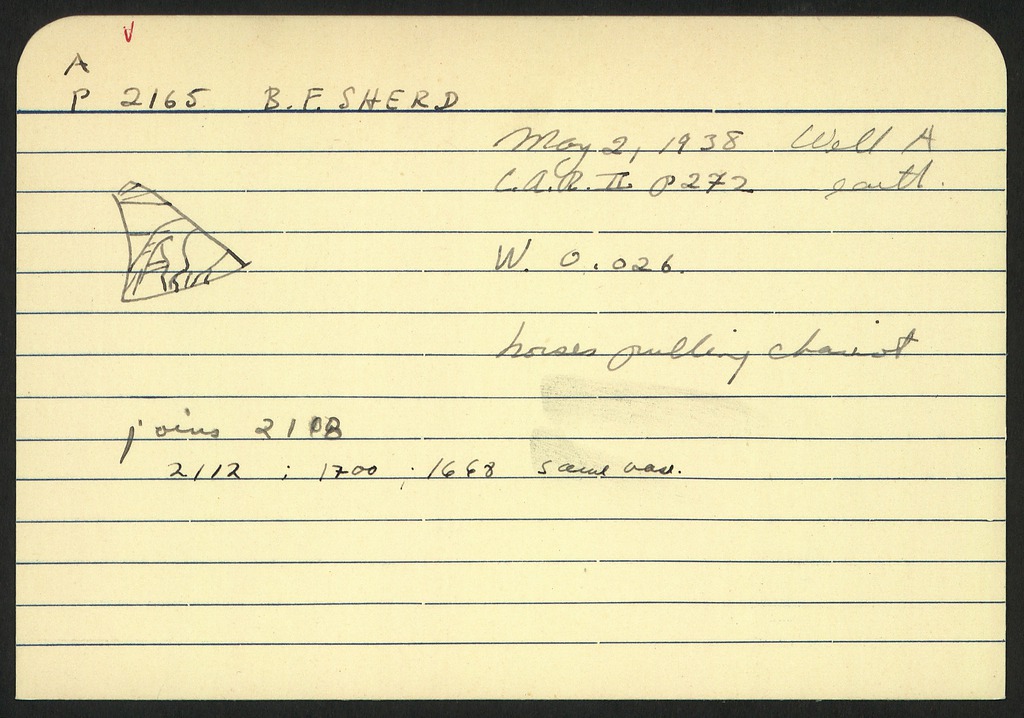 A
P 2165 B.F. SHERD
May 2, 1938 Well A
C.A.R. II p272 earth.
W. 0.026.
horses pulling chariot
joins 2108
2112 ; 1700 ; 1668 same vase.